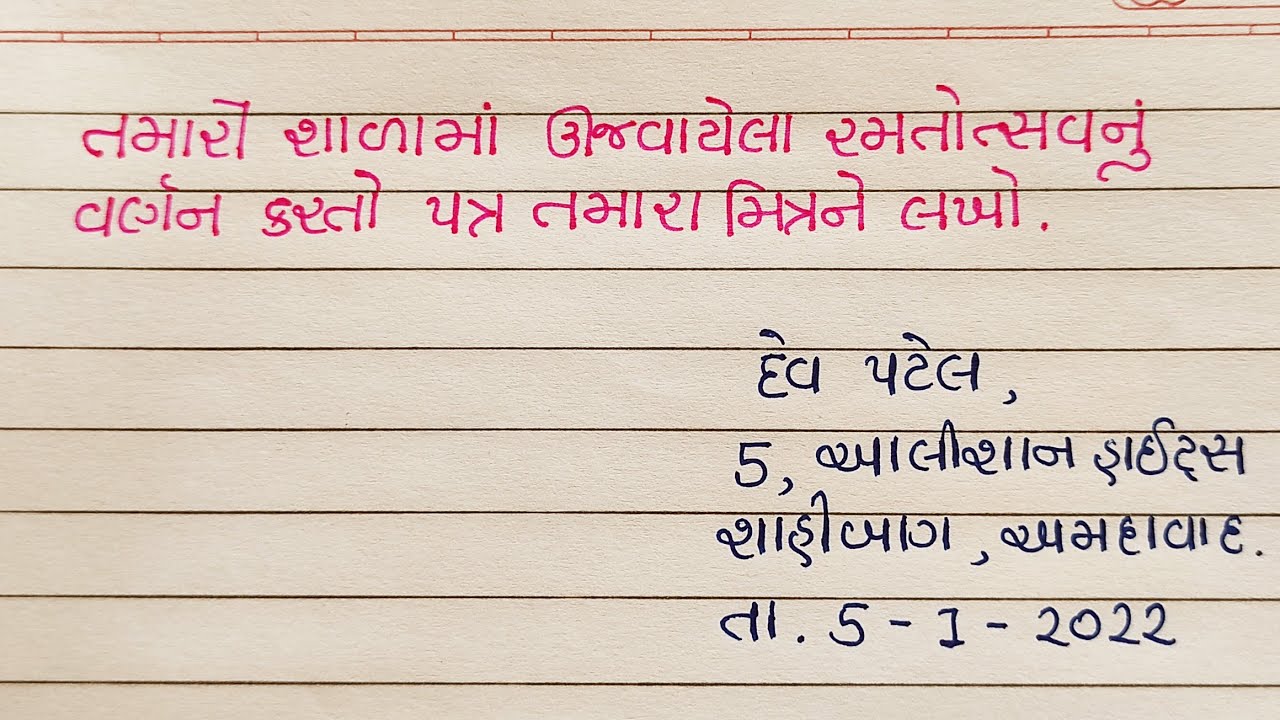 તમારી શાળામાં ઊજવાયેલા રમતોત્સવનું
વર્ણન કરતો પત્ર તમારા મિત્રને લખો.
દેવ પટેલ,
5, આલીશાન હાઈટ્સ
શાહીબાગ, અમદાવાદ.
તા. 5-1-2022